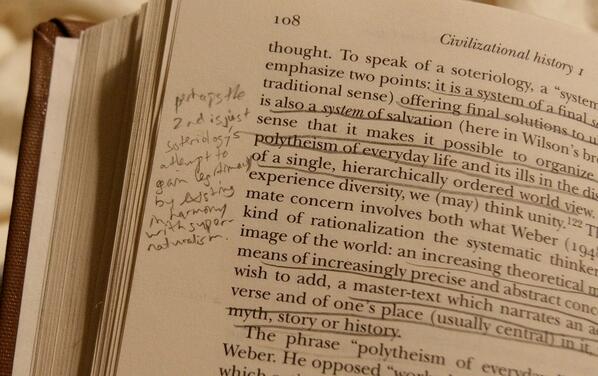 108
Civilizational history 1
thought. To speak of a soteriology, a “system
emphasize two points: it is a system of a final s
traditional sense) offering final solutions to u
is also a system of salvation (here in Wilson's br
sense that it makes it possible to organize
polytheism of everyday life and its ills in the dis
of a single, hierarchically ordered world view.
experience diversity, we (may) think unity.122 Th
mate concern involves both what Weber (194
kind of rationalization the systematic thinker
image of the world: an increasing theoretical m
means of increasingly precise and abstract conc
wish to add, a master-text which narrates an a
verse and of one's place (usually central) in it,
myth, story or history.
The phrase “polytheism of everyday
Weber. He opposed “wor
which
perhaps the
2nd is just
soteriology's
attempt to
gain legitimacy
by existing
in harmony
with super-
naturalism.